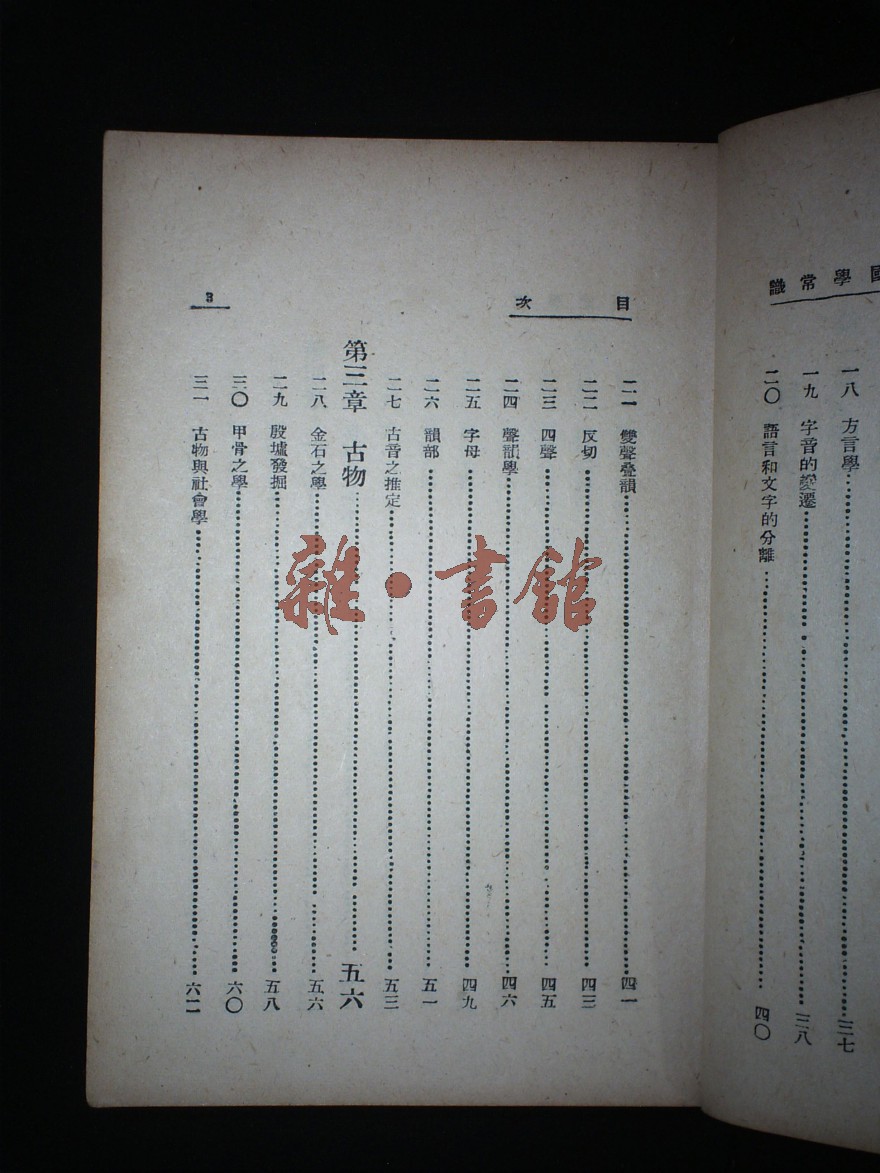 國學常識
一八 方言學 三七
一九 字音的變遷 三八
二〇 語言和文字的分離 四〇
目次
3
二一 雙聲疊韻 四一
二二 反切 四三
二三 四聲 四五
二四 聲韻學 四六
二五 字母 四九
二六 韻部 五一
二七 古音之推定 五三
第三章 古物 五六
二八 金石之學 五六
二九 殷墟發掘 五八
三〇 甲骨之學 六〇
三一 古物與社會學 六二
雜·書館